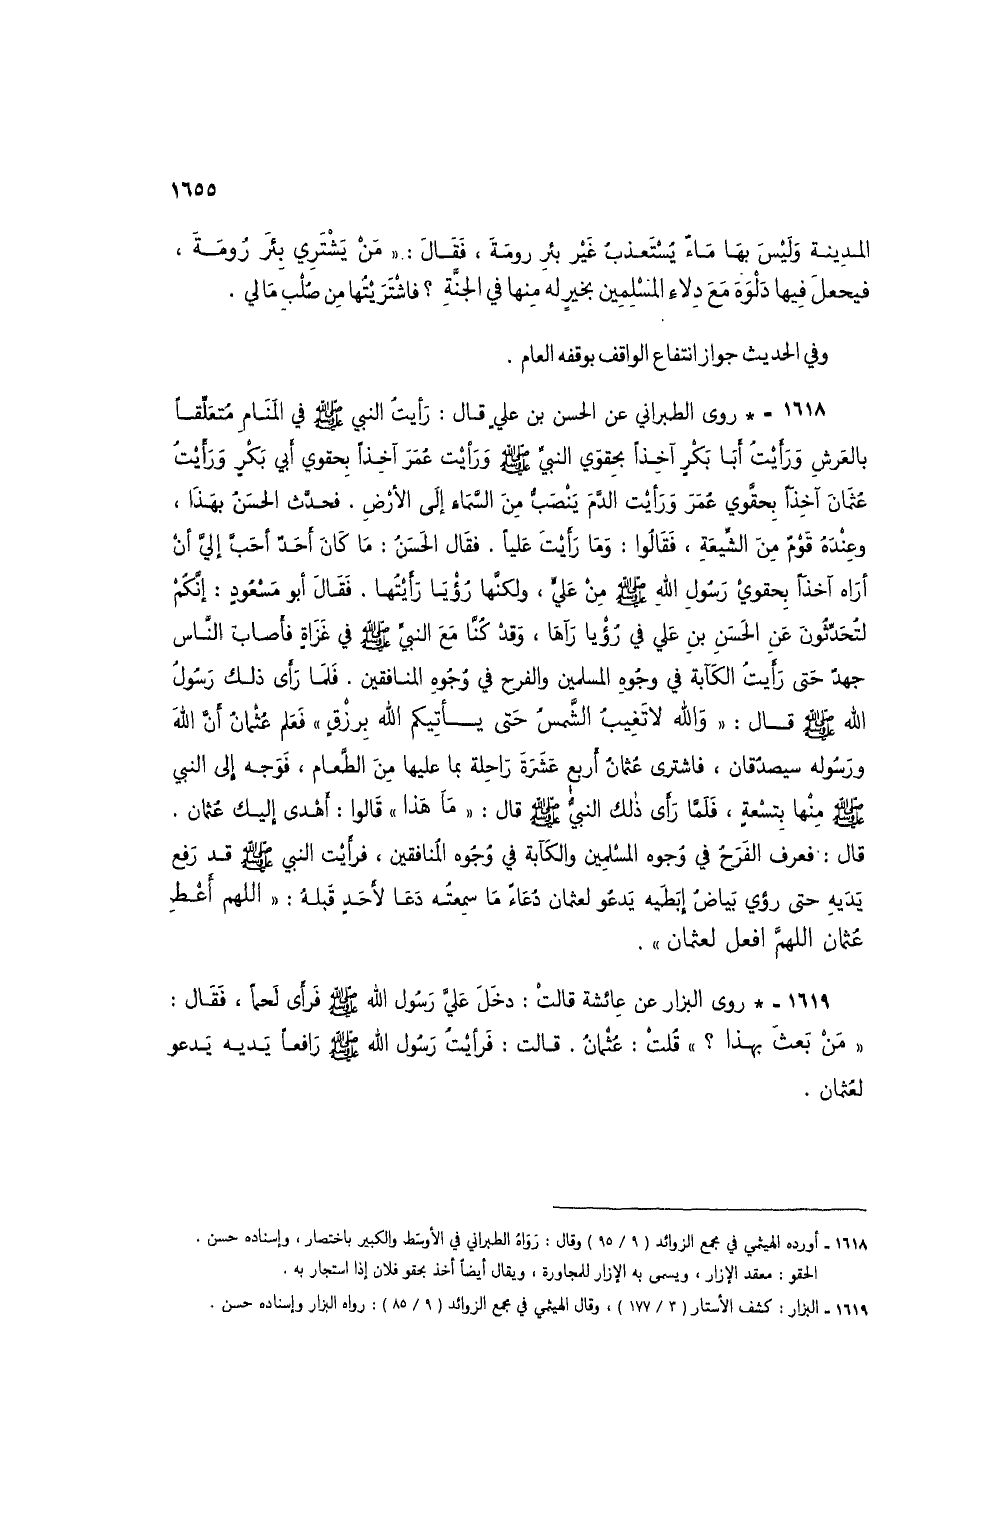 ١٦٥٥
المدينة وَلَيْسَ بهَا مَاءٌ يُسْتَعذبُ غَيْر بئرِ رومَةَ ، فَقَالَ : « مَنْ يَشْتَرِي بِئَر رُومَةَ ،
فيحعلَ فِيها دَلْوَهَ مَعَ دِلاءِ المُسْلِمِين بخيرٍ له مِنها في الجنَّةِ ؟ فاشْتَرَيْتُها مِن صُلْبِ مَالي .
وفي الحديث جواز انتفاع الواقف بوقفه العام .
١٦١٨ - * روى الطبراني عن الحسن بن عليٍ قال : رَأيتُ النبي ﷺ في المَنَامِ مُتعَلِّقاً
بالعَرشِ وَرَأَيْتُ أَبَا بَكْرٍ آخِذاً بحِقوَي النبيِّ ﷺ وَرَأيْت عُمَرَ آخِذاً بِحقوي أبي بَكْرٍ وَرَأَيْتُ
عُثْمَانَ آخِذَاً بِحقْوي عُمَرَ وَرَأيْت الدَّمَ يَنْصَبُّ مِنَ السَّمَاء إلَى الأرْضِ . فحدَّث الحسَنُ بهَذَا ،
وعِنْدَهُ قَوْمٌ مِنَ الشِّيعَةِ ، فَقَالُوا : وَمَا رَأَيْتَ عَلياً . فقَال الحَسَنُ : مَا كَانَ أَحَدٌ أحَبَّ إليَّ أنْ
أرَاه آخذَاً بِحقويْ رَسُولِ اللهِ ﷺ مِنْ عَليٍّ ، ولكنَّها رُؤْيَا رَأَيْتُها . فَقَالَ أبو مَسْعُودٍ : إنَّكُمْ
لتُحَدِّثُونَ عَنِ الحَسَنِ بنِ عَلي في رُؤْيا رَآهَا ، وَقدْ كُنَّا مَعَ النبيِّ ﷺ في غَزَاةٍ فأصابَ النَّاس
جهدٌ حَتى رَأَيتُ الكَآبة في وجُوهِ المسلمين والفرح في وُجُوهِ المنافقين . فَلَمَا رَأى ذلك رَسُولُ
الله ﷺ قال : « وَالله لاتَغيبُ الشَّمسُ حَتى يأتيكم الله برزْقٍ » فَعَلم عُثْمانُ أنَّ اللهَ
ورَسُوله سيصدّقان ، فاشترى عُثمانُ أربع عَشَرَةَ رَاحِلة بما عليها مِنَ الطَّعام ، فَوَجه إلى النبي
ﷺ مِنْها بتسْعةٍ ، فَلَمَّا رَأى ذٰلك النبيُّ ﷺ قال : « مَا هَذا » قَالوا : أهْدى إليك عُثمان .
قال : فعرف الفَرَحُ في وُجوه المسْلِمين والكَآبة في وُجُوه المُنافقين ، فرأَيْت النبي ﷺ قد رَفع
يَدَيهِ حتى رؤي بَيَاضُ إبَطَيه يَدعُو لعثمان دُعَاءً مَا سِمعتُه دَعَا لأحَدٍ قَبلهُ : « اللهم أعْطِ
عُثمان اللهمَّ افعل لعثمان » .
١٦١٩ - * روى البزار عن عائشة قالتْ : دخَلَ عَليَّ رَسُول الله ﷺ فَرأى لَحماً ، فَقَال :
« مَنْ بَعثَ بهذا ؟ » قُلتْ : عُثْمانُ . قالت : فَرأيْتُ رَسُول الله ﷺ رَافعاً يَديه يَدعو
لعُثمان .
١٦١٨ - أورده الهيثمي في مجمع الزوائد ( ٩ / ٩٥ ) وقال : رَوَاهُ الطبراني في الأوسَط والكبير باختصار ، وإسناده حسن .
الحقو : معقد الإزار ، ويسمى به الإزار للمجاورة ، ويقال أيضاً أخذ بحقو فلان إذا استجار به .
١٦١٩ - البزار : كشف الأستار ( ٣ / ١٧٧ ) ، وقال الهيثمي في مجمع الزوائد ( ٩ / ٨٥ ) : رواه البزار وإسناده حسن .